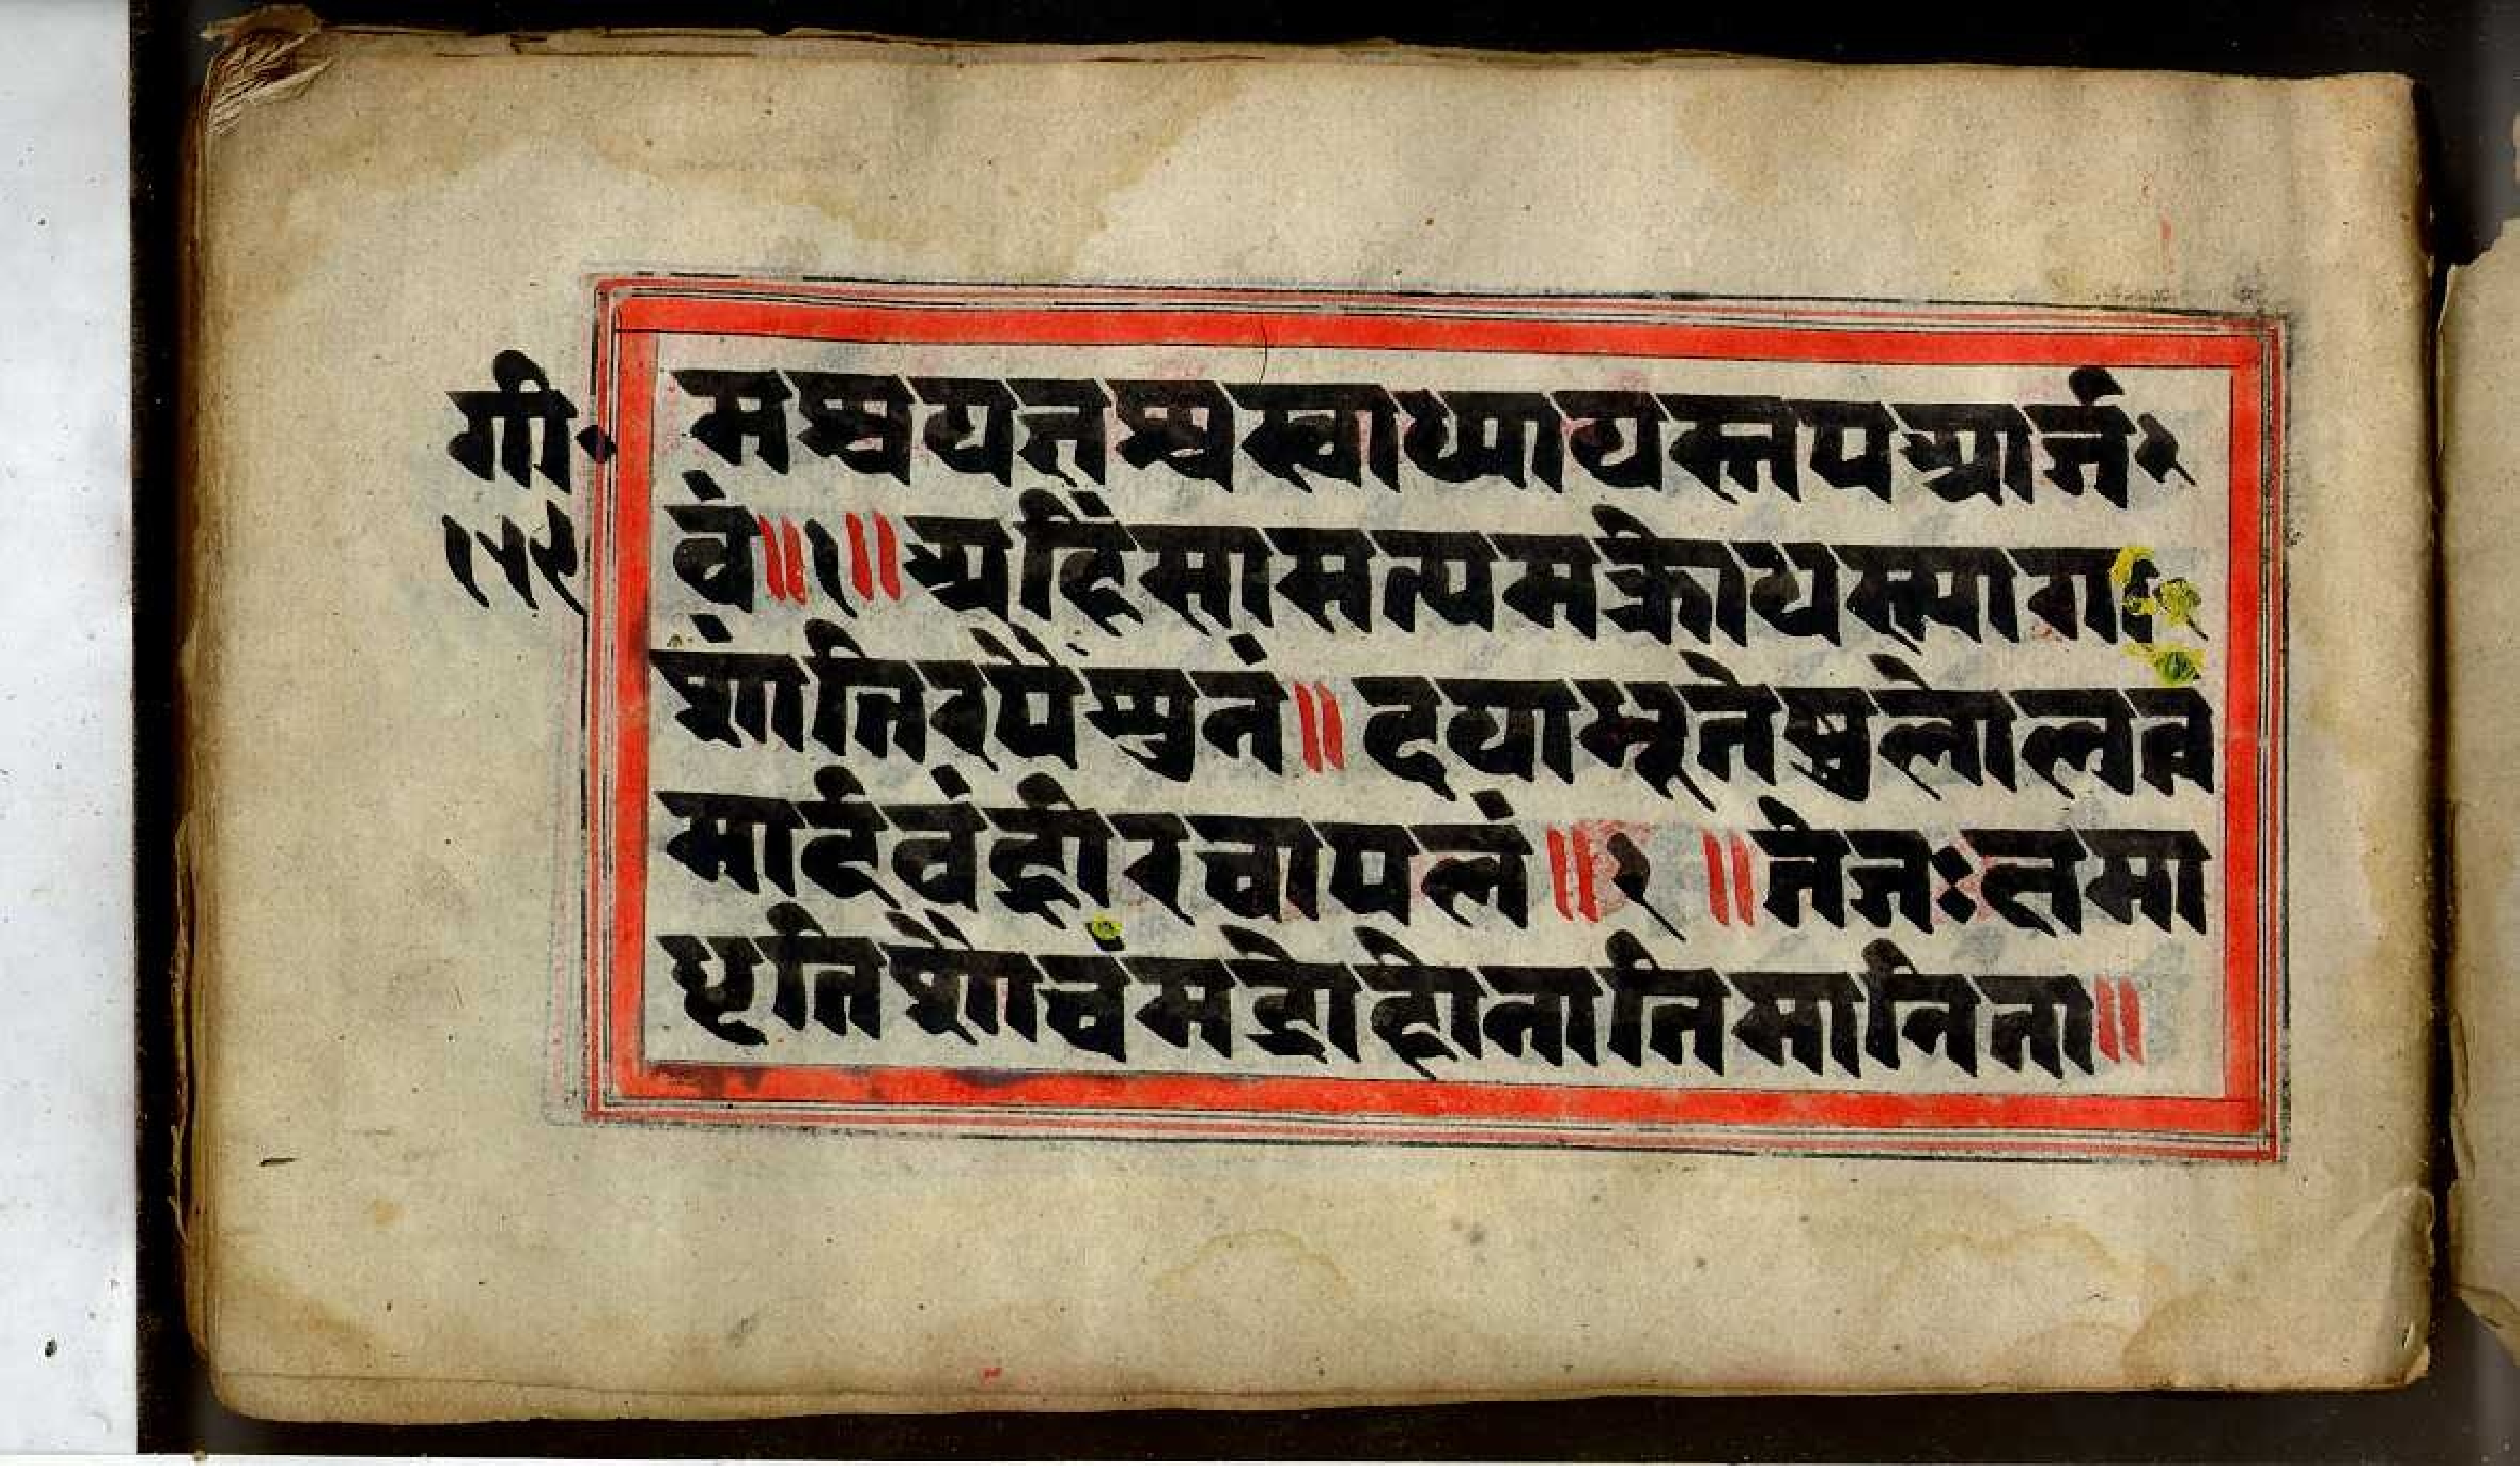 गी॰
१५९
मश्चयज्ञश्चस्वाध्यायस्तपआर्ज
वं॥१॥अहिंसासत्यमक्रोधस्त्यागः
शांतिरपैशुनं॥दयाभूतेषुलोलत्व
मार्दवंह्रीरचापलं॥२॥तेजःक्षमा
धृतिशौचंमद्रोहोनातिमानिता॥